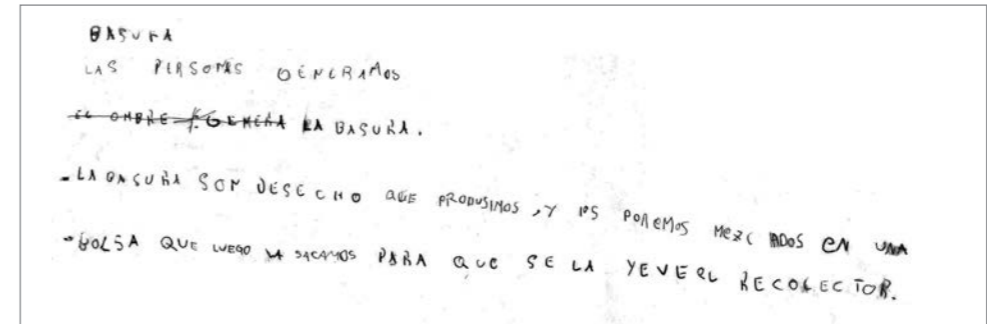 BASURA
LAS PERSONAS GENERAMOS
EL OMBRE GENERA LA BASURA.
- LA BASURA SON DESECHO QUE PRODUSIMOS, Y LOS PONEMOS MEZCLADOS EN UNA
- BOLSA QUE LUEGO LA SACAMOS PARA QUE SE LA YEVE EL RECOLECTOR.